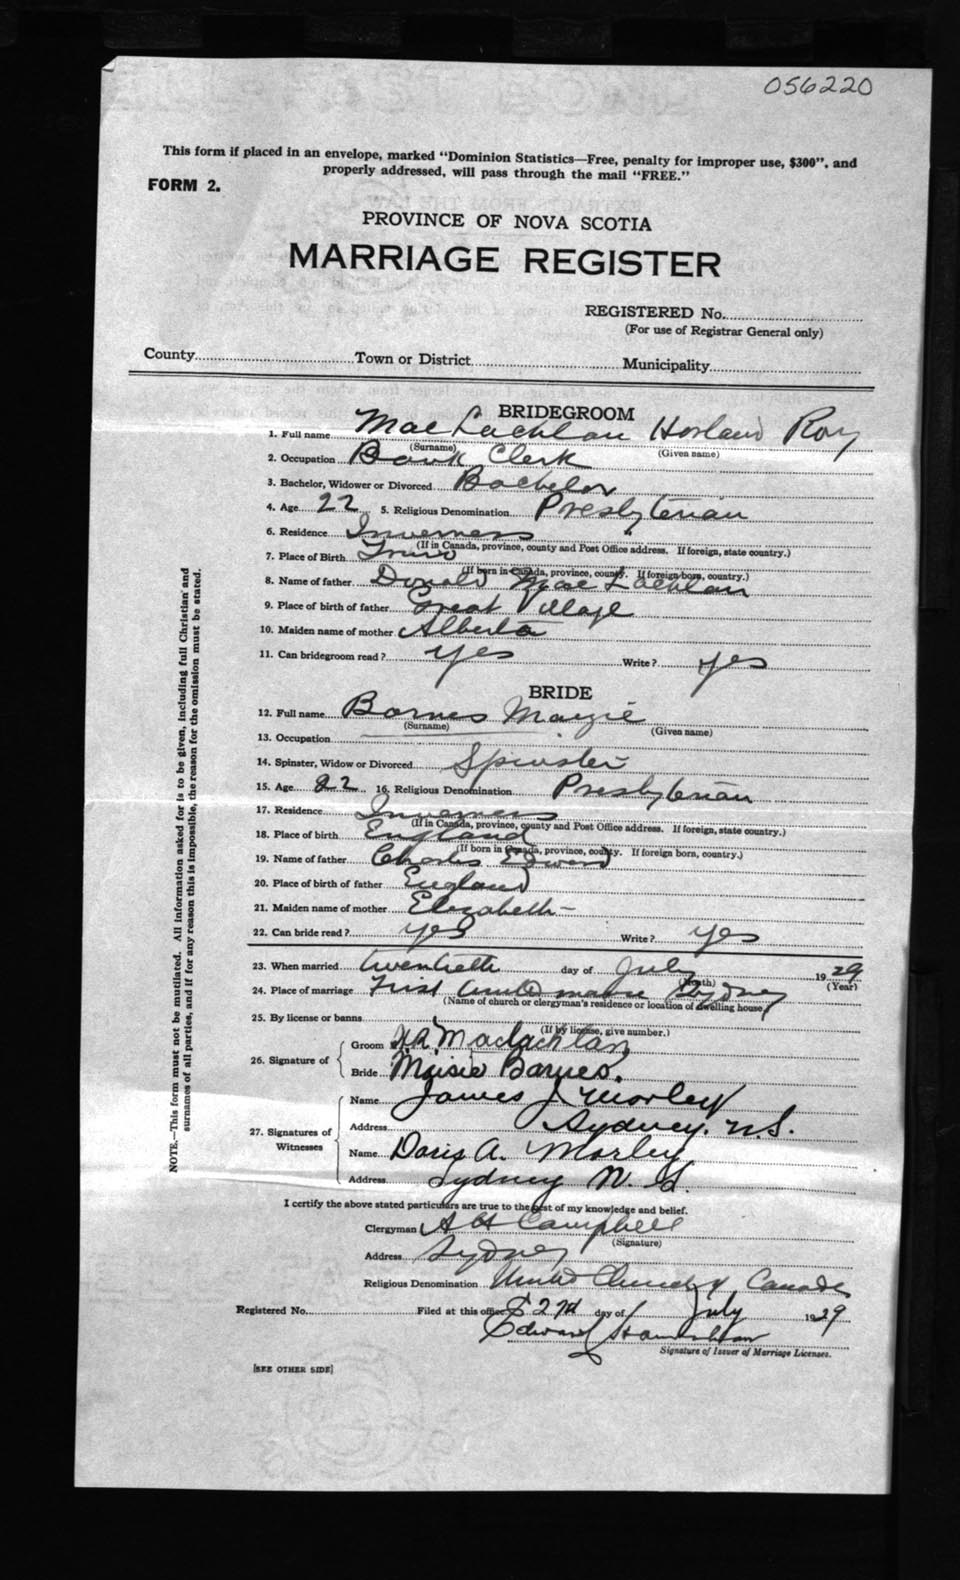 056220
This form if placed in an envelope, marked "Dominion Statistics—Free, penalty for improper use, $300", and
properly addressed, will pass through the mail "FREE."
FORM 2.
PROVINCE OF NOVA SCOTIA
MARRIAGE REGISTER
REGISTERED No.
(For use of Registrar General only)
County Town or District Municipality
BRIDEGROOM
1. Full name MacLachlan Roy
(Surname) (Given name)
2. Occupation Bank Clerk
3. Bachelor, Widower or Divorced Bachelor
4. Age 22 5. Religious Denomination Presbyterian
6. Residence Inverness
(If in Canada, province, county and Post Office address. If foreign, state country.)
7. Place of Birth Truro
(If born in Canada, province, county. If foreign born, country.)
8. Name of father Donald MacLachlan
9. Place of birth of father Great Village
10. Maiden name of mother Alberta
11. Can bridegroom read? yes Write? yes
BRIDE
12. Full name Barnes Maizie
(Surname) (Given name)
13. Occupation
14. Spinster, Widow or Divorced Spinster
15. Age 22 16. Religious Denomination Presbyterian
17. Residence Inverness
(If in Canada, province, county and Post Office address. If foreign, state country.)
18. Place of birth England
(If born in Canada, province, county. If foreign born, country.)
19. Name of father Charles Edward
20. Place of birth of father England
21. Maiden name of mother Elizabeth —
22. Can bride read? yes Write? yes
23. When married twentieth day of July 1929
(Month) (Year)
24. Place of marriage First United manse Sydney
(Name of church or clergyman's residence or location of dwelling house)
25. By license or banns
(If by license, give number.)
26. Signature of
Groom H R Maclachlan
Bride Maisie Barnes.
27. Signatures of Witnesses
Name James J. Morley
Address Sydney. N.S.
Name Doris A. Morley
Address Sydney N. S.
I certify the above stated particulars are true to the best of my knowledge and belief.
Clergyman A H Campbell
(Signature)
Address Sydney
Religious Denomination United Church of Canada
Registered No. Filed at this office 22nd day of July 1929
Edward
Signature of Issuer of Marriage Licenses.
[SEE OTHER SIDE]
NOTE.—This form must not be mutilated. All information asked for is to be given, including full Christian and
surnames of all parties, and if for any reason this is impossible, the reason for the omission must be stated.